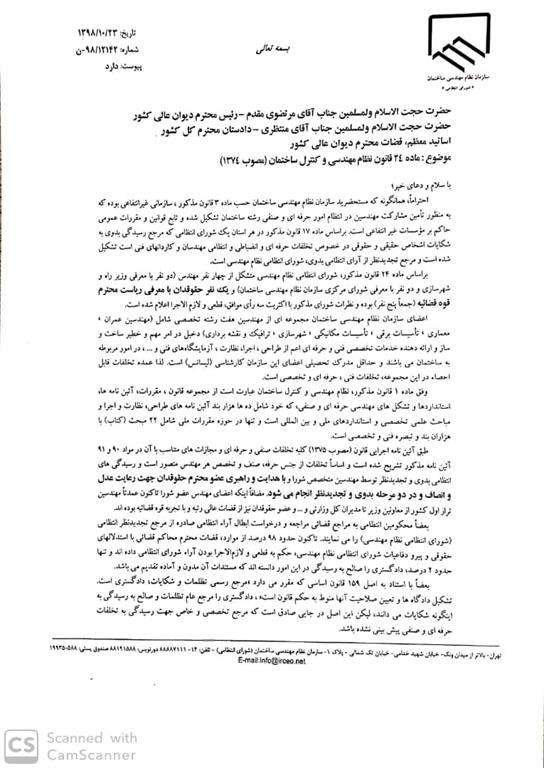 تاریخ: ۱۳۹۸/۱۰/۲۳
شماره: ۹۸/۱۲۱۴۲-ن
پیوست: دارد
بسمه تعالی
سازمان نظام مهندسی ساختمان
شورای انتظامی
حضرت حجت الاسلام ولمسلمین جناب آقای مرتضوی مقدم – رئیس محترم دیوان عالی کشور
حضرت حجت الاسلام ولمسلمین جناب آقای منتظری – دادستان محترم کل کشور
اساتید معظم، قضات محترم دیوان عالی کشور
موضوع: ماده ۲۴ قانون نظام مهندسی و کنترل ساختمان (مصوب ۱۳۷۴)
با سلام و دعای خیر؛
احتراماً، همانگونه که مستحضرید سازمان نظام مهندسی ساختمان حسب ماده ۳ قانون مذکور، سازمانی غیرانتفاعی بوده که
به منظور تأمین مشارکت مهندسین در انتظام امور حرفه ای و صنفی رشته ساختمان تشکیل شده و تابع قوانین و مقررات عمومی
حاکم بر مؤسسات غیر انتفاعی است. براساس ماده ۱۷ قانون مذکور در هر استان یک شورای انتظامی که مرجع رسیدگی بدوی به
شکایات اشخاص حقیقی و حقوقی در خصوص تخلفات حرفه ای و انضباطی و انتظامی مهندسان و کاردانهای فنی است تشکیل
شده است و مرجع تجدیدنظر از آرای انتظامی بدوی، شورای انتظامی نظام مهندسی است.
براساس ماده ۲۴ قانون مذکور، شورای انتظامی نظام مهندسی متشکل از چهار نفر مهندس (دو نفر با معرفی وزیر راه و
شهرسازی و دو نفر با معرفی شورای مرکزی سازمان نظام مهندسی ساختمان) و یک نفر حقوقدان با معرفی ریاست محترم
قوه قضائیه (جمعاً پنج نفر) بوده و نظرات شورای مذکور با اکثریت سه رأی موافق، قطعی و لازم الاجرا اعلام شده است.
اعضای سازمان نظام مهندسی ساختمان مجموعه ای از مهندسین هفت رشته تخصصی شامل (مهندسین عمران ،
معماری ، تأسیسات برقی ، تأسیسات مکانیکی ، شهرسازی ، ترافیک و نقشه برداری) دخیل در امر مهم و خطیر ساخت و
ساز و ارائه دهنده خدمات تخصصی فنی و حرفه ای اعم از طراحی ، اجرا، نظارت ، آزمایشگاههای فنی و ... ، در امور مربوطه
به ساختمان می باشند و حداقل مدرک تحصیلی اعضای این سازمان کارشناسی (لیسانس) است. لذا عمده تخلفات قابل
احصاء در این مجموعه، تخلفات فنی ، حرفه ای و تخصصی است.
وفق ماده ۱ قانون مذکور، نظام مهندسی و کنترل ساختمان عبارت است از مجموعه قانون ، مقررات، آئین نامه ها،
استانداردها و تشکل های مهندسی حرفه ای و صنفی، که خود شامل ده ها هزار بند آئین نامه های طراحی، نظارت و اجرا و
مباحث علمی تخصصی و استانداردهای ملی و بین المللی است و تنها در حوزه مقررات ملی شامل ۲۲ مبحث (کتاب) با
هزاران بند و تبصره فنی و تخصصی است.
طبق آئین نامه اجرایی قانون (مصوب ۱۳۷۵) کلیه تخلفات صنفی و حرفه ای و مجازات های متناسب با آن در مواد ۹۰ و ۹۱
آئین نامه مذکور تشریح شده است و اساساً تخلفات از جنس حرفه، صنف و تخصص هر مهندس متصور است و رسیدگی های
انتظامی بدوی و تجدیدنظر توسط مهندسین متخصص شورا و با هدایت و راهبری عضو محترم حقوقدان جهت رعایت عدل
و انصاف و در دو مرحله بدوی و تجدیدنظر انجام می شود. مضافاً اینکه اعضای مهندس عضو شورا تاکنون عمدتاً مهندسین
تراز اول کشور از معاونین وزیر تا مدیران کل وزارتی و... و عضو حقوقدان نیز از قضات عالی رتبه و با تجربه قوه قضائیه بوده اند.
بعضاً محکومین انتظامی به مراجع قضائی مراجعه و درخواست ابطال آراء انتظامی صادره از مرجع تجدیدنظر انتظامی
(شورای انتظامی نظام مهندسی) را می نمایند. تاکنون حدود ۹۸ درصد از موارد، قضات محترم محاکم قضائی با استدلالهای
حقوقی و پیرو دفاعیات شورای انتظامی نظام مهندسی، حکم به قطعی و لازم‌الاجرا بودن آراء شورای انتظامی داده اند و تنها
حدود ۲ درصد، دادگستری را صالح به رسیدگی در این امور دانسته اند که مستندات آن مدون و آماده تقدیم می باشد.
بعضاً با استناد به اصل ۱۵۹ قانون اساسی که مقرر می دارد «مرجع رسمی تظلمات و شکایات، دادگستری است.
تشکیل دادگاه ها و تعیین صلاحیت آنها منوط به حکم قانون است» ، دادگستری را مرجع عام تظلمات و صالح به رسیدگی به
اینگونه شکایات می دانند، لیکن این اصل در جایی صادق است که مرجع تخصصی و خاص جهت رسیدگی به تخلفات
حرفه ای و صنفی پیش بینی نشده باشد.
تهران- بالاتر از میدان ونک- خیابان شهید خدامی- خیابان تک شمالی - پلاک ۱- سازمان نظام مهندسی ساختمان (شورای انتظامی) - تلفن: ۱۴- ۸۸۸۷۷۱۱۱ دورنویس: ۸۸۱۹۱۵۸۸ صندوق پستی: ۵۸۸-۱۹۹۳۵
E-mail:info@irceo.net
CS Scanned with
CamScanner